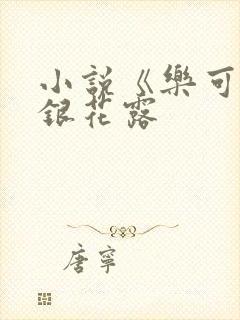 小說《樂可
銀花露
唐寧